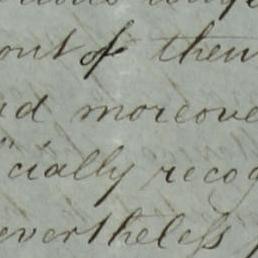 out of them
d moreove
cially recog
evertheless